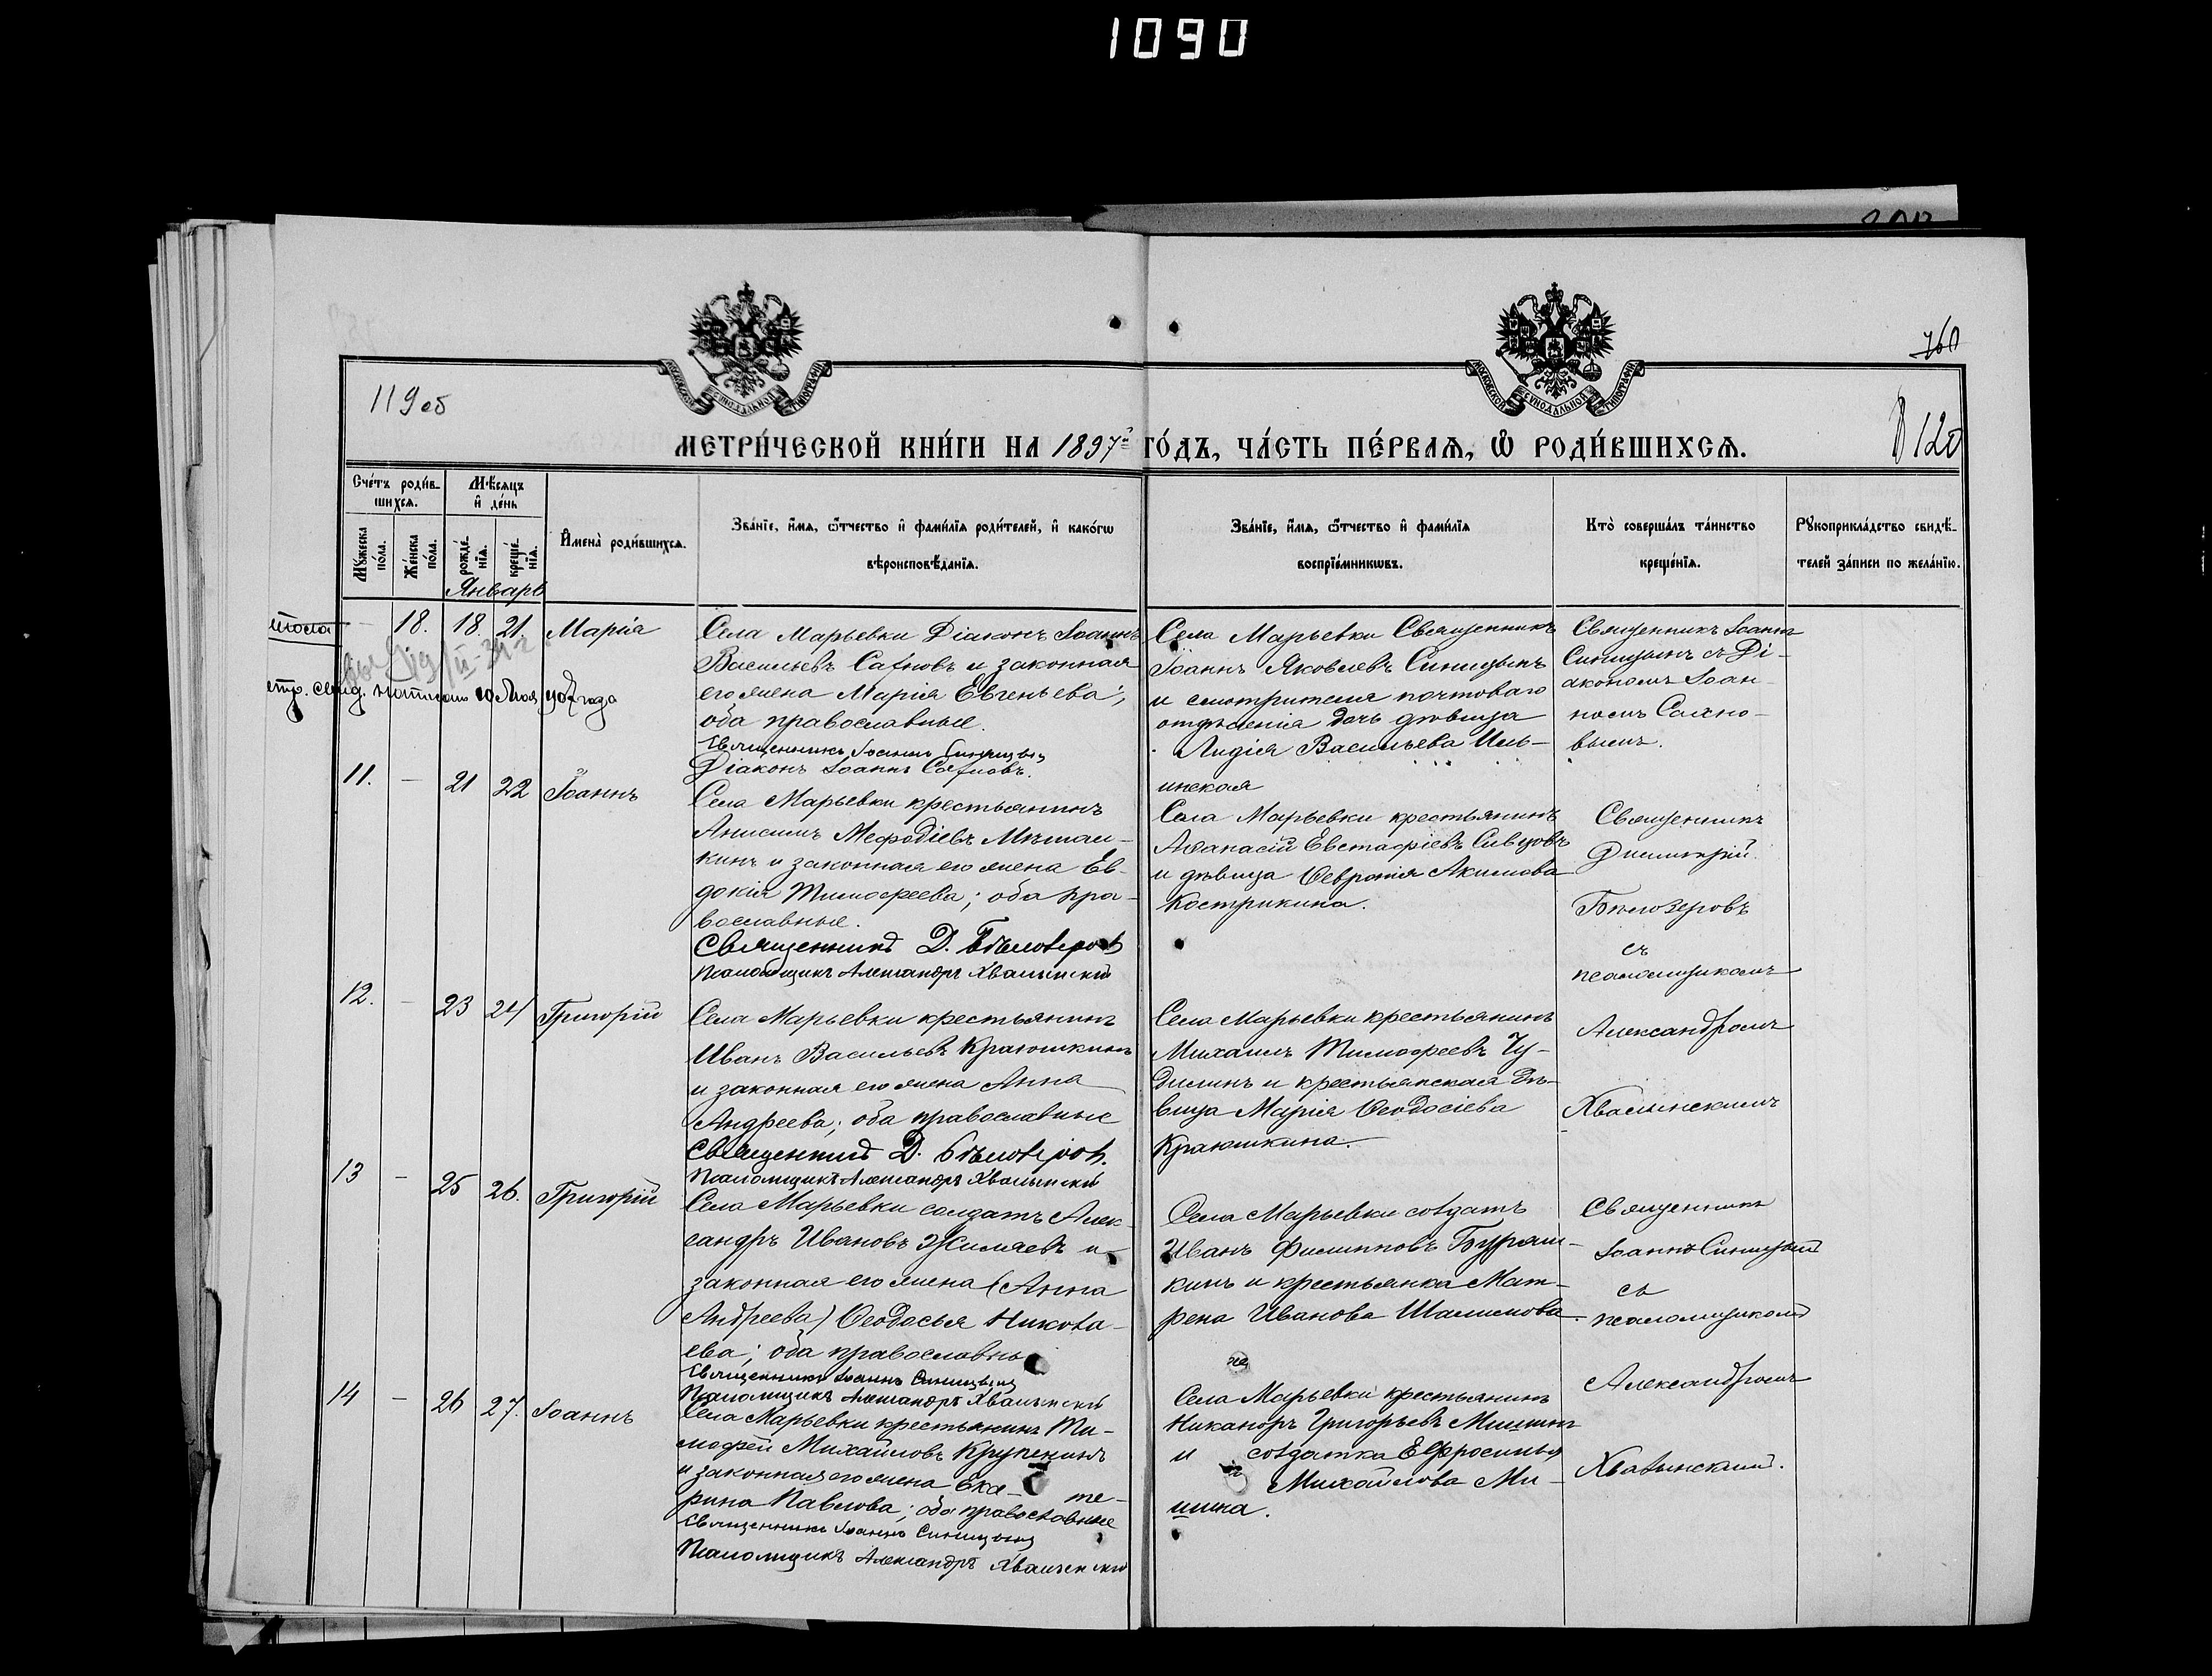 1090
760
119 об
120
МОСКОВСКОЙ СѴНОДАЛЬНОЙ ТИПОГРАФІИ
МОСКОВСКОЙ СѴНОДАЛЬНОЙ ТИПОГРАФІИ
МЕТРИ́ЧЕСКОЙ КНИ́ГИ НА 1897й ГО́ДЪ, ЧА́СТЬ ПЕ́РВАѦ, Ѡ҆ РОДИ́ВШИХСѦ.
Сче́тъ роди́в-
шихсѧ.
Мѣ́сѧцъ
и҆ де́нь
Мꙋ́жеска по́ла.
Же́нска по́ла.
рожде́-нїѧ.
креще́-нїѧ.
И҆мена̀ роди́вшихсѧ.
Зва́нїе, и҆́мѧ, ѻ҆́тчество и҆ фами́лїѧ роди́телей, и҆ како́гѡ
вѣроисповѣ́данїѧ.
Зва́нїе, и҆́мѧ, ѻ҆́тчество и҆ фами́лїѧ
воспрїе́мникѡвъ.
Кто̀ соверша́лъ та́инство
креще́нїѧ.
Рꙋкоприкла́дство свидѣ́-
телей за́писи по жела́нїю.
Январь
18. 18. 21. Марія
Села Марьевки Діаконъ Іоаннъ
Васильевъ и законная
его жена Марія Евгеньева;
оба православные.
Священникъ Іоаннъ Синицынъ
Діаконъ Іоаннъ
Села Марьевки Священникъ
Іоаннъ Яковлевъ Синицынъ
и смотрителя почтоваго
отдѣленія дочь дѣвица
Лидія Васильева Иль-
инская
Священникъ Іоаннъ
Синицынъ съ Ді-
акономъ Іоан-
номъ
вымъ.
11. — 21 22 Іоаннъ
Села Марьевки крестьянинъ
Анисимъ Мефодіевъ
кинъ и законная его жена Ев-
докія Тимофеева; оба пра-
вославные.
Священникъ Д. Бѣлозеровъ
Псаломщикъ Александръ Хвалынскій
Села Марьевки крестьянинъ
Аѳанасій Евстафіевъ Сивцовъ
и дѣвица Ѳевронія Акимова
Кострикина.
Священникъ
Димитрій
Бѣлозеровъ
съ
псаломщикомъ
Александромъ
Хвалынскимъ
12. — 23 24 Григорій
Села Марьевки крестьянинъ
Иванъ Васильевъ Краюшкинъ
и законная его жена Анна
Андреева; оба православные
Священникъ Д. Бѣлозеровъ.
Псаломщикъ Александръ Хвалынскій
Села Марьевки крестьянинъ
Михаилъ Тимофеевъ Чу-
и крестьянская дѣ-
вица Марія Ѳеодосіева
Краюшкина.
13 — 25 26. Григорій
Села Марьевки солдатъ Алек-
сандръ Ивановъ Жиляевъ и
законная его жена (Анна
Андреева) Ѳеодосья Никола-
ева; оба православны
Священникъ Іоаннъ Синицынъ
Псаломщикъ Александръ Хвалынскій
Села Марьевки солдатъ
Иванъ Филипповъ
кинъ и крестьянка Мат-
рена Иванова
Священникъ
Іоаннъ Синицынъ
съ
псаломщикомъ
Александромъ
Хвалынскимъ.
14 — 26 27. Іоаннъ
Села Марьевки крестьянинъ Ти-
мофей Михайловъ Крупенинъ
и законная его жена Ека- те-
рина Павлова; оба православные
Священникъ Іоаннъ Синицынъ
Псаломщикъ Александръ Хвалынскій
Села Марьевки крестьянинъ
Никаноръ Григорьевъ Мишинъ
и солдатка Ефросинья
Михайлова Ми-
шина.